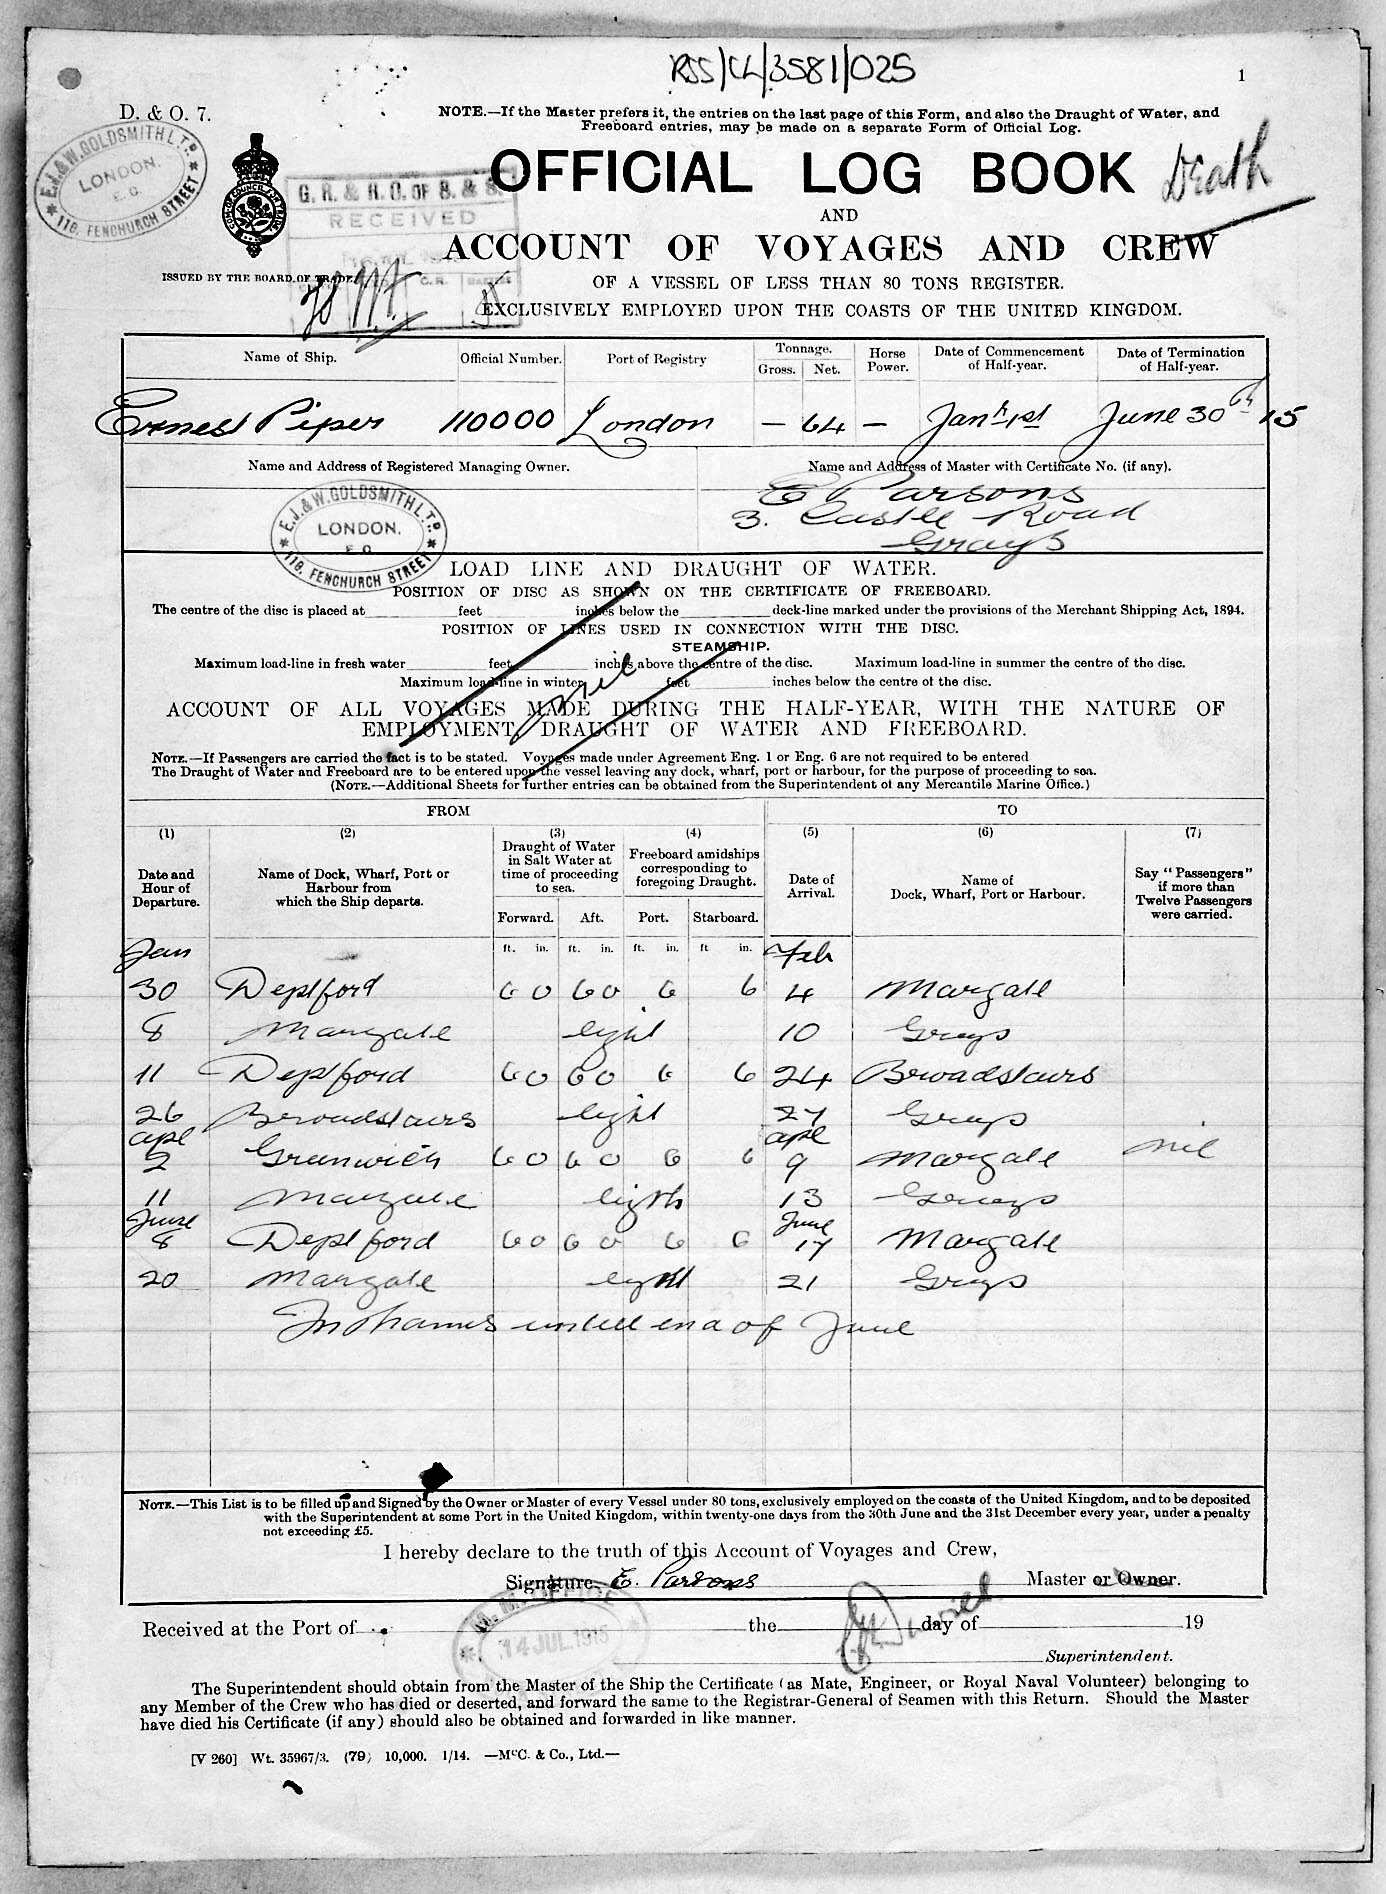 RSS/CL/3581/025
1
D. & O. 7.
NOTE.—If the Master prefers it, the entries on the last page of this Form, and also the Draught of Water, and
Freeboard entries, may be made on a separate Form of Official Log.
E.J. & W. GOLDSMITH LTD.
LONDON.
E. C.
118, FENCHURCH STREET
G. R. & R. O. OF S. & S.
RECEIVED
OFFICIAL LOG BOOK
Death
AND
ACCOUNT OF VOYAGES AND CREW
ISSUED BY THE BOARD OF TRADE.
OF A VESSEL OF LESS THAN 80 TONS REGISTER.
EXCLUSIVELY EMPLOYED UPON THE COASTS OF THE UNITED KINGDOM.
Name of Ship. Official Number. Port of Registry Tonnage. Gross. Net. Horse Power. Date of Commencement of Half-year. Date of Termination of Half-year.
Ernest Piper 110000 London — 64 — Jany 1st June 30th 15
Name and Address of Registered Managing Owner. Name and Address of Master with Certificate No. (if any).
E Parsons
3. Castle Road
Grays
E.J. & W. GOLDSMITH LTD.
LONDON.
E. C.
118, FENCHURCH STREET
LOAD LINE AND DRAUGHT OF WATER.
POSITION OF DISC AS SHOWN ON THE CERTIFICATE OF FREEBOARD.
The centre of the disc is placed at feet inches below the deck-line marked under the provisions of the Merchant Shipping Act, 1894.
POSITION OF LINES USED IN CONNECTION WITH THE DISC.
STEAMSHIP.
Maximum load-line in fresh water feet inches above the centre of the disc. Maximum load-line in summer the centre of the disc.
Maximum load-line in winter feet inches below the centre of the disc.
nil
ACCOUNT OF ALL VOYAGES MADE DURING THE HALF-YEAR, WITH THE NATURE OF
EMPLOYMENT, DRAUGHT OF WATER AND FREEBOARD.
NOTE.—If Passengers are carried the fact is to be stated. Voyages made under Agreement Eng. 1 or Eng. 6 are not required to be entered
The Draught of Water and Freeboard are to be entered upon the vessel leaving any dock, wharf, port or harbour, for the purpose of proceeding to sea.
(NOTE.—Additional Sheets for further entries can be obtained from the Superintendent of any Mercantile Marine Office.)
FROM TO
(1) (2) (3) (4) (5) (6) (7)
Date and Hour of Departure. Name of Dock, Wharf, Port or Harbour from which the Ship departs. Draught of Water in Salt Water at time of proceeding to sea. Freeboard amidships corresponding to foregoing Draught. Date of Arrival. Name of Dock, Wharf, Port or Harbour. Say "Passengers" if more than Twelve Passengers were carried.
Forward. Aft. Port. Starboard.
ft. in. ft. in. ft. in. ft in.
Jan Feb
30 Deptford 6 0 6 0 6 6 4 Margate
8 Margate light 10 Grays
11 Deptford 6 0 6 0 6 6 24 Broadstairs
26 Broadstairs light 27 Grays
apl apl
2 Greenwich 6 0 6 0 6 6 9 Margate nil
11 Margate ligth 13 Grays
June June
8 Deptford 6 0 6 0 6 6 17 Margate
20 Margate light 21 Grays
In Thames untill end of June
NOTE.—This List is to be filled up and Signed by the Owner or Master of every Vessel under 80 tons, exclusively employed on the coasts of the United Kingdom, and to be deposited
with the Superintendent at some Port in the United Kingdom, within twenty-one days from the 30th June and the 31st December every year, under a penalty
not exceeding £5.
I hereby declare to the truth of this Account of Voyages and Crew,
Signature E. Parsons Master or Owner.
M. M. OFFICE
14 JUL 1915
Received at the Port of the day of 19
Superintendent.
The Superintendent should obtain from the Master of the Ship the Certificate (as Mate, Engineer, or Royal Naval Volunteer) belonging to
any Member of the Crew who has died or deserted, and forward the same to the Registrar-General of Seamen with this Return. Should the Master
have died his Certificate (if any) should also be obtained and forwarded in like manner.
[V 260] Wt. 35967/3. (79) 10,000. 1/14. —McC. & Co., Ltd.—